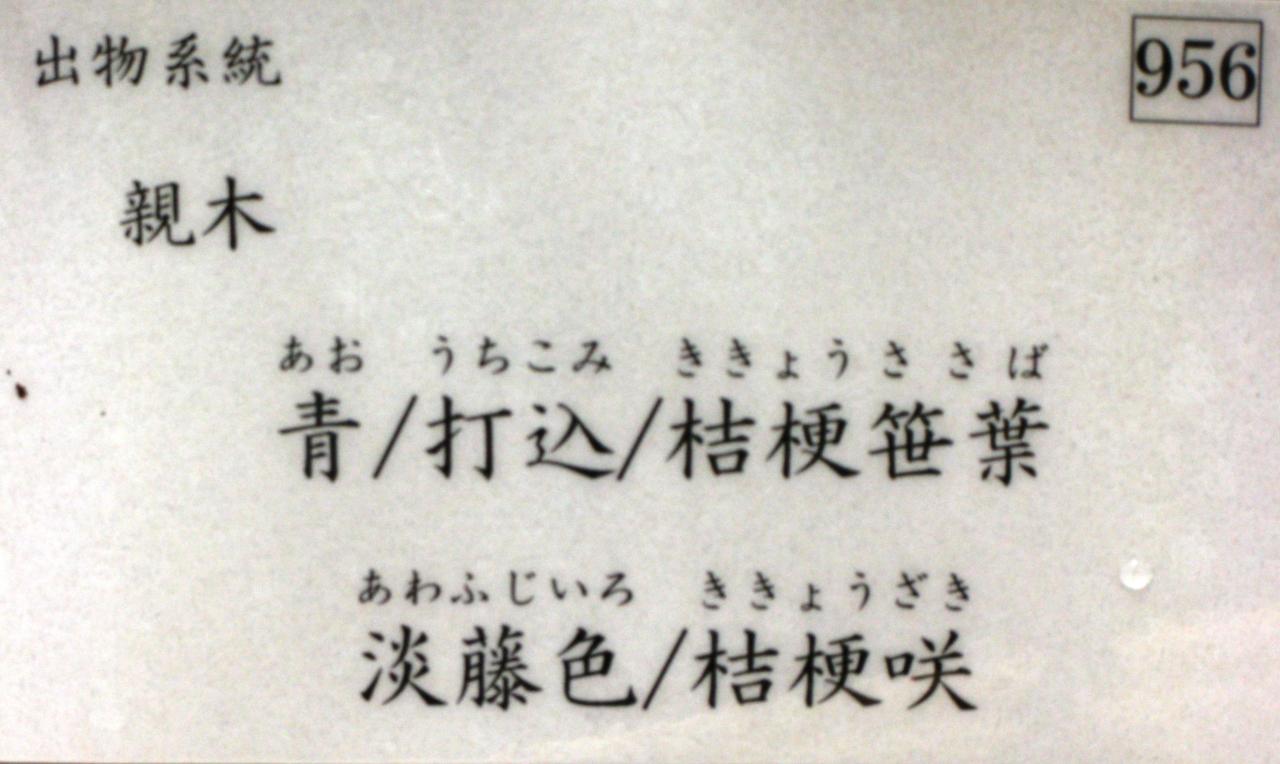 出物系統
956
親木
あお うちこみ ききょうささば
青/打込/桔梗笹葉
あわふじいろ ききょうざき
淡藤色/桔梗咲